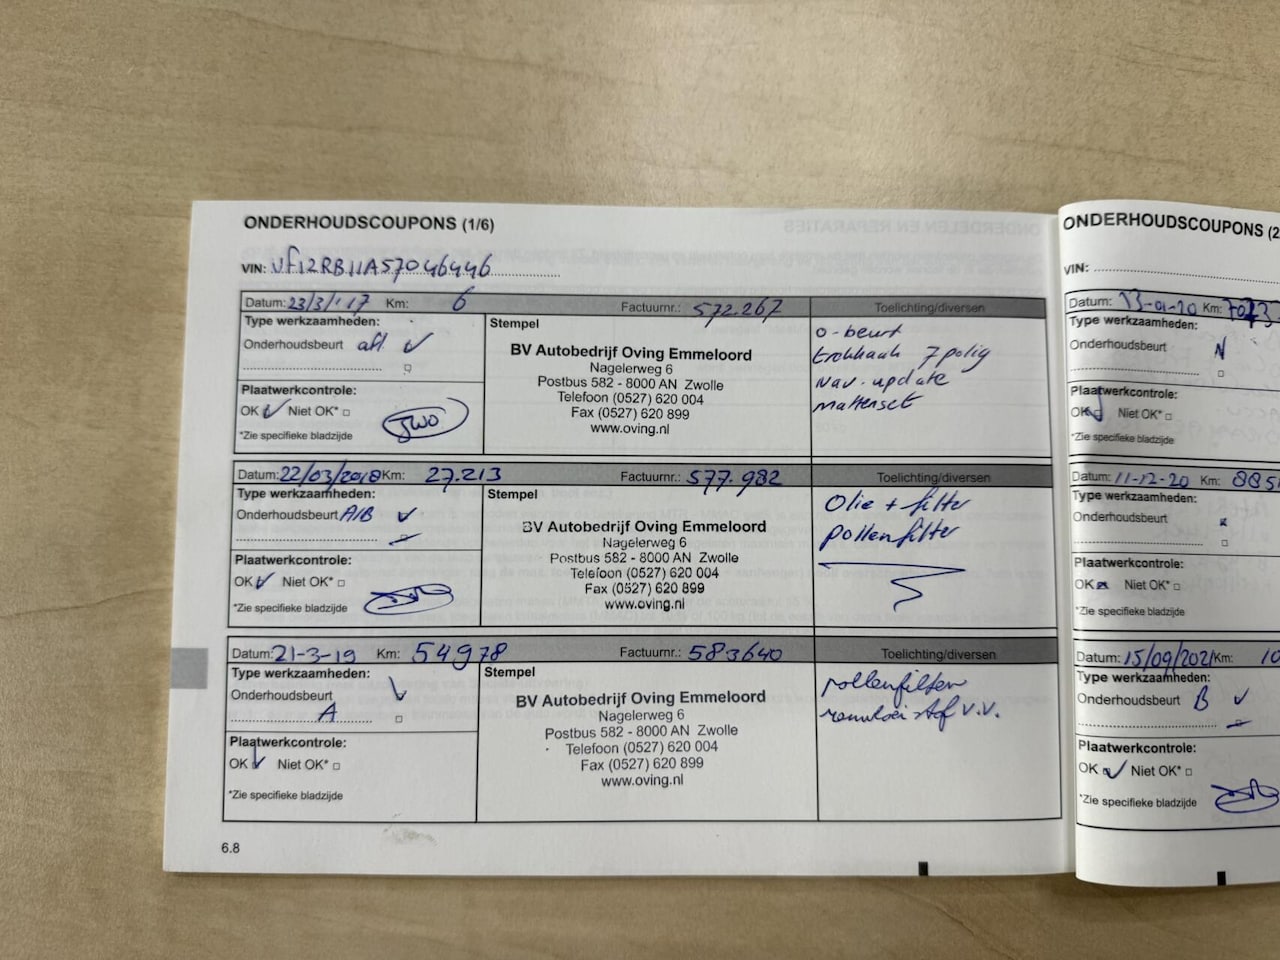 ONDERHOUDSCOUPONS (1/6)
VIN: VF12RB11A57046446
Datum: 23/3/'17 Km: 6 Factuurnr.: 572.267 Toelichting/diversen
Type werkzaamheden:
Onderhoudsbeurt afl
Plaatwerkcontrole:
OK Niet OK*
*Zie specifieke bladzijde
Stempel
BV Autobedrijf Oving Emmeloord
Nagelerweg 6
Postbus 582 - 8000 AN Zwolle
Telefoon (0527) 620 004
Fax (0527) 620 899
www.oving.nl
0-beurt
trekhaak 7 polig
Nav. update
mattenset
Datum: 22/03/2018 Km: 27.213 Factuurnr.: 577.982 Toelichting/diversen
Type werkzaamheden:
Onderhoudsbeurt A/B
Plaatwerkcontrole:
OK Niet OK*
*Zie specifieke bladzijde
Stempel
BV Autobedrijf Oving Emmeloord
Nagelerweg 6
Postbus 582 - 8000 AN Zwolle
Telefoon (0527) 620 004
Fax (0527) 620 899
www.oving.nl
Olie + filter
pollenfilter
Datum: 21-3-19 Km: 54978 Factuurnr.: 583640 Toelichting/diversen
Type werkzaamheden:
Onderhoudsbeurt
A
Plaatwerkcontrole:
OK Niet OK*
*Zie specifieke bladzijde
Stempel
BV Autobedrijf Oving Emmeloord
Nagelerweg 6
Postbus 582 - 8000 AN Zwolle
Telefoon (0527) 620 004
Fax (0527) 620 899
www.oving.nl
pollenfilter
remvloeistof v.v.
6.8
ONDERHOUDSCOUPONS (2
VIN:
Datum: 13-01-20 Km:
Type werkzaamheden:
Onderhoudsbeurt
Plaatwerkcontrole:
OK Niet OK*
*Zie specifieke bladzijde
Datum: 11-12-20 Km: 885
Type werkzaamheden:
Onderhoudsbeurt
Plaatwerkcontrole:
OK Niet OK*
*Zie specifieke bladzijde
Datum: 15/09/2021 Km: 10
Type werkzaamheden:
Onderhoudsbeurt B
Plaatwerkcontrole:
OK Niet OK*
*Zie specifieke bladzijde